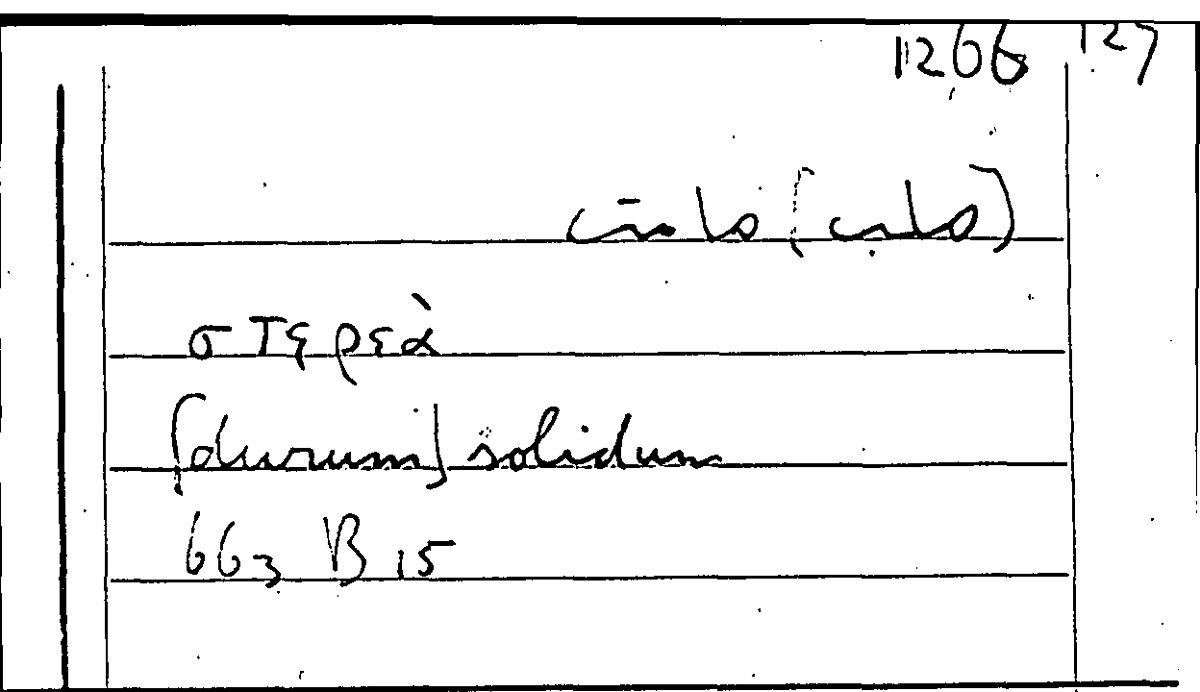 1266 127
στερεὰ
[durum] solidum
663 B 15